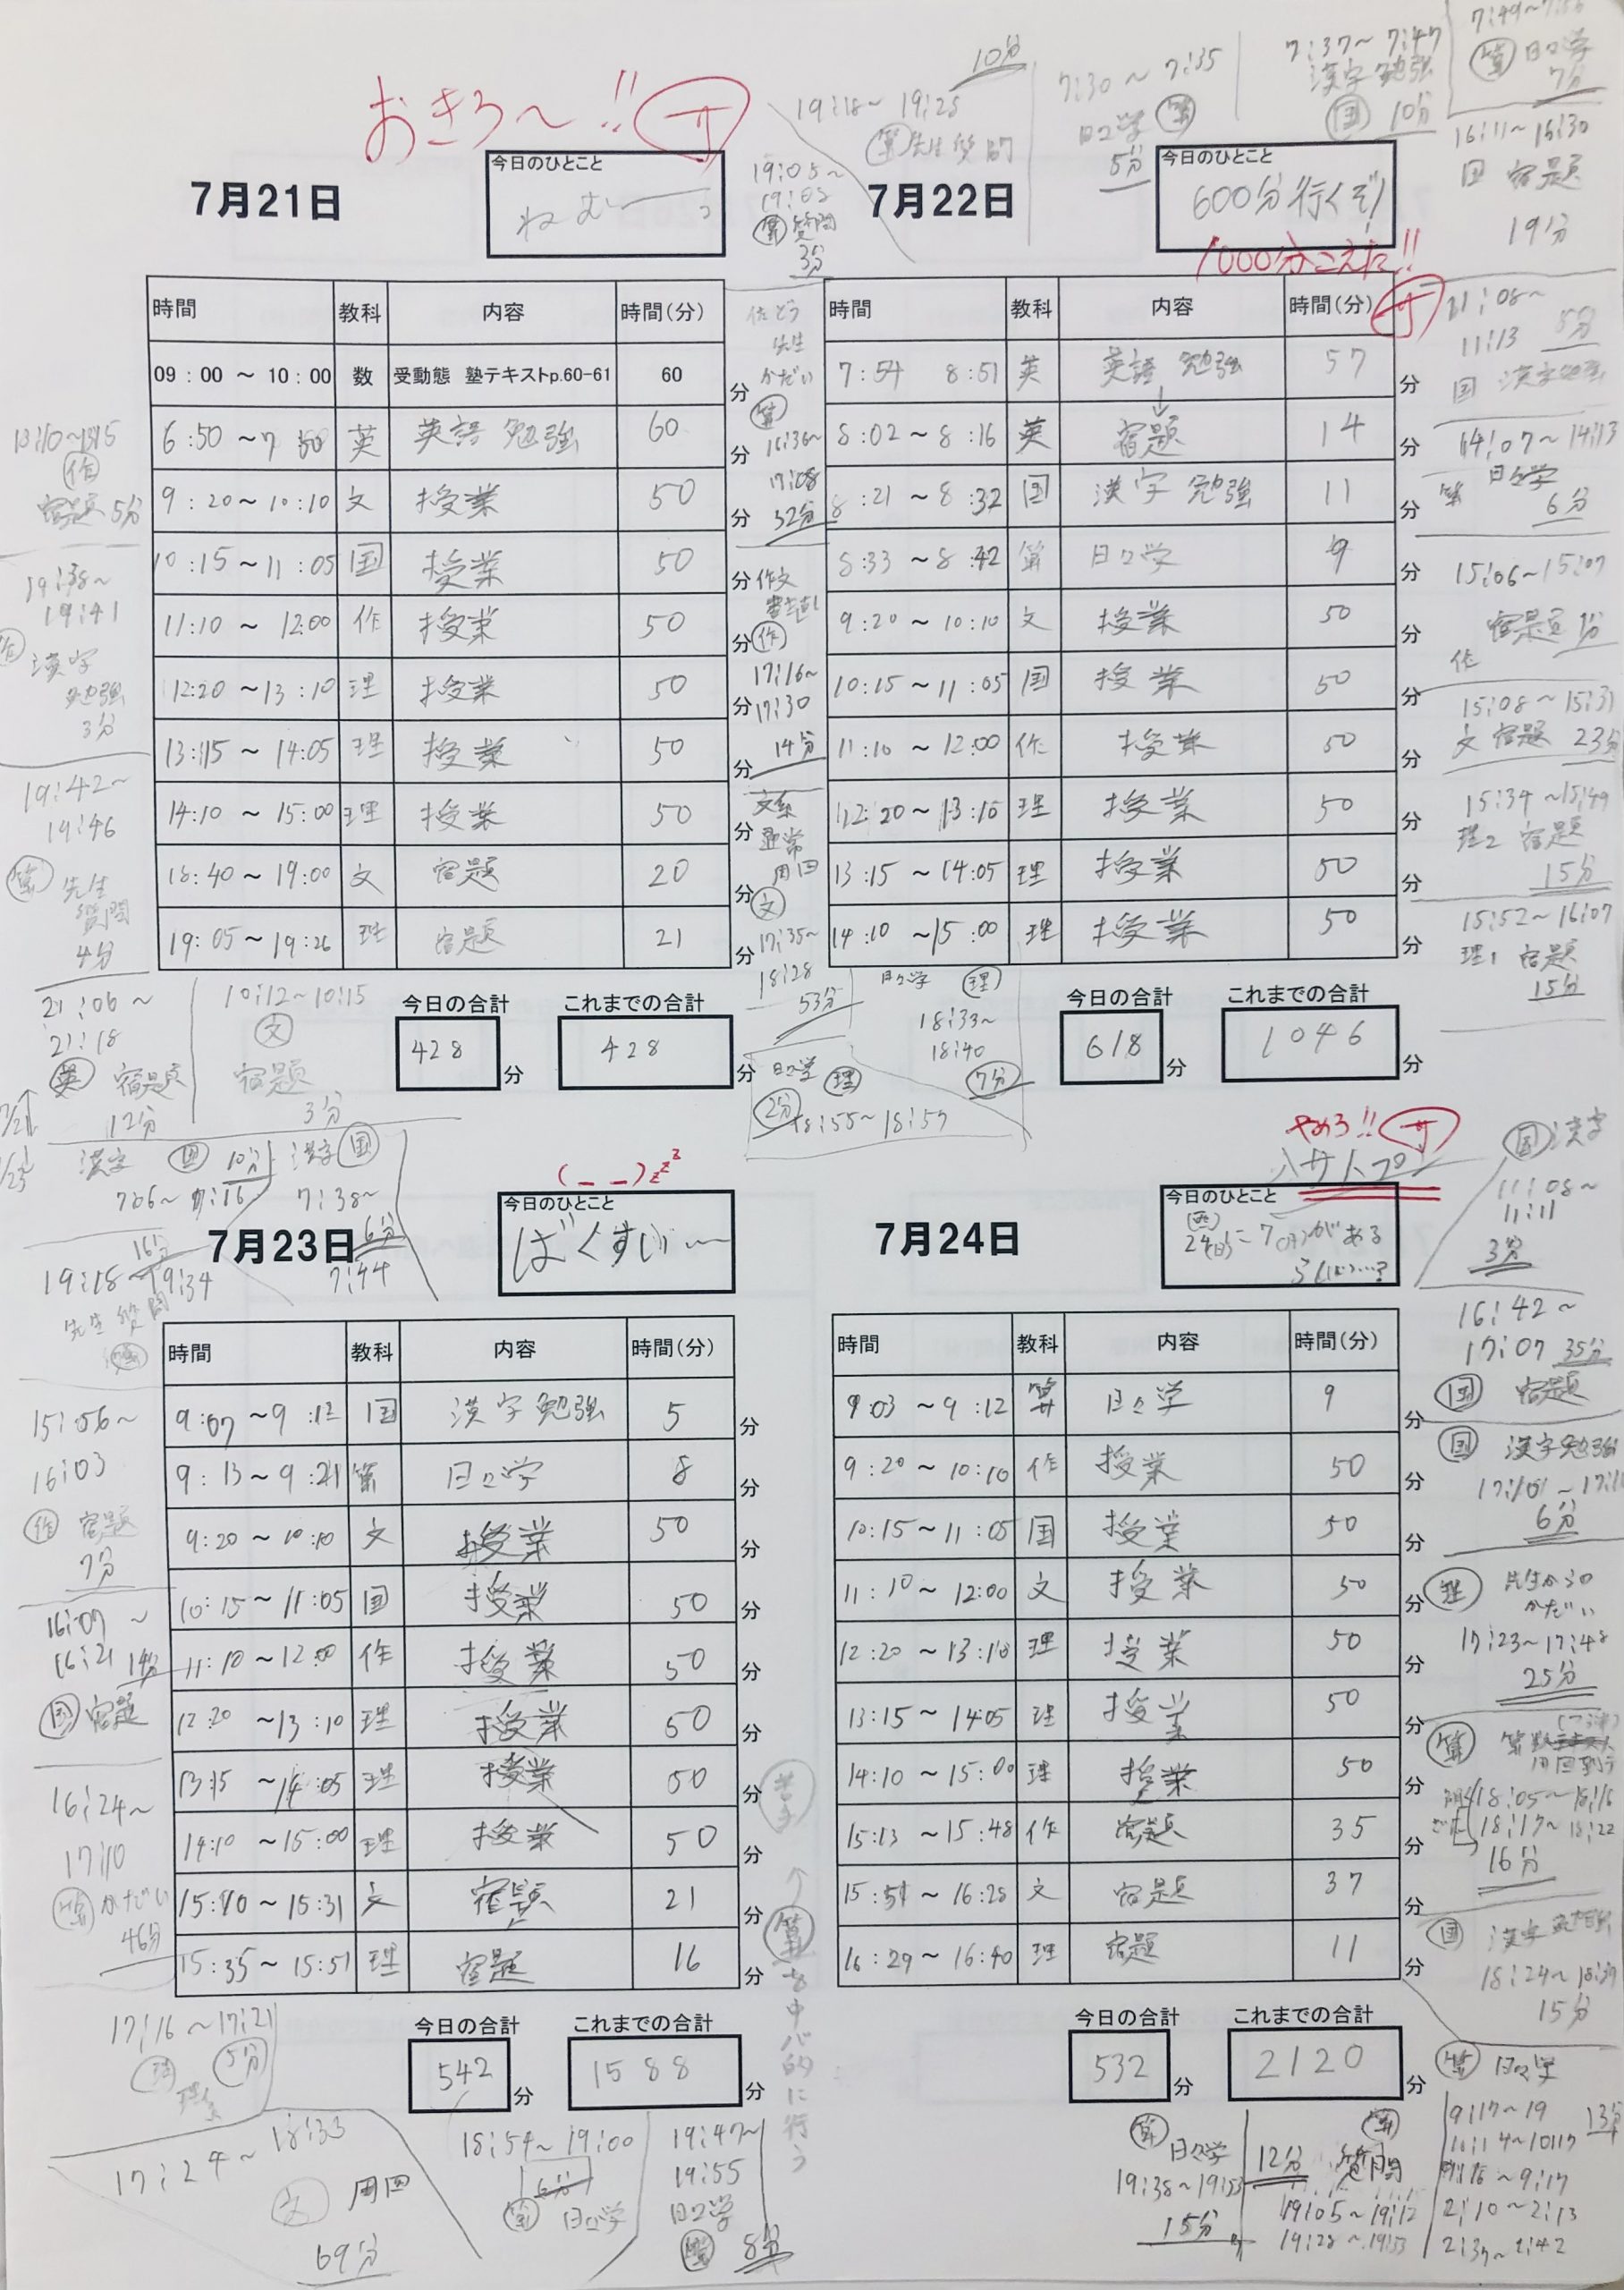 おきろ〜!! サ
7月21日
今日のひとこと
ねむーっ
時間 教科 内容 時間(分)
09:00 〜 10:00 数 受動態 塾テキストp.60-61 60 分
6:50 〜7:50 英 英語 勉強 60 分
9:20〜10:10 文 授業 50 分
10:15〜11:05 国 授業 50 分
11:10 〜 12:00 作 授業 50 分
12:20 〜13:10 理 授業 50 分
13:15 〜 14:05 理 授業 50 分
14:10 〜 15:00 理 授業 50 分
18:40 〜 19:00 文 宿題 20 分
19:05〜19:26 理 宿題 21 分
今日の合計 428 分
これまでの合計 428 分
作
宿題 5分
19:38〜
19:41
漢字
勉強
3分
19:42〜
19:46
算 先生
質問
4分
21:06 〜
21:18
英 宿題
12分
10:12〜10:15
文
宿題
3分
19:18〜 19:28
10分
算 先生質問
19:05〜
算 質問
3分
佐とう
先生
かだい
算
16:36〜
17:08
32分
作文
書き直し
作
17:16〜
17:30
14分
文系
通常
用回
文
17:35〜
18:28
53分
日々学 理
18:33〜
18:40
7分
日々学 理
2分
18:55〜18:57
7月22日
今日のひとこと
600分行くぞ!
1000分こえた!! サ
7:30 〜 7:35
日々学 算
5分
7:37〜 7:47
漢字 勉強
国 10分
算 日々学
7分
16:11〜16:30
国 宿題
19分
時間 教科 内容 時間(分)
7:54 8:51 英 英語 勉強 57 分
8:02〜8:16 英 宿題 14 分
8:21 〜8:32 国 漢字 勉強 11 分
8:33 〜8:42 算 日々学 9 分
9:20〜10:10 文 授業 50 分
10:15〜11:05 国 授業 50 分
11:10 〜12:00 作 授業 50 分
12:20〜13:10 理 授業 50 分
13:15 〜14:05 理 授業 50 分
14:10 〜15:00 理 授業 50 分
今日の合計 618 分
これまでの合計 1046 分
11:13 5分
国 漢字勉強
14:07〜14:13
算 日々学
6分
15:06〜15:07
宿題 1分
作
15:08〜15:31
文 宿題 23分
15:34 〜15:49
理2 宿題
15分
15:52〜16:07
理1 宿題
15分
漢字 国 10分
7:06〜7:16
漢字 国
7:38〜
7:44
6分
7月23日
(_ _)zzz
今日のひとこと
ばくすいー
16分
19:18〜19:34
先生 質問
時間 教科 内容 時間(分)
9:07〜9:12 国 漢字 勉強 5 分
9:13〜9:21 算 日々学 8 分
9:20〜10:10 文 授業 50 分
10:15〜11:05 国 授業 50 分
11:10〜12:00 作 授業 50 分
12:20 〜13:10 理 授業 50 分
13:15 〜14:05 理 授業 50 分
14:10 〜15:00 理 授業 50 分
15:10〜15:31 文 宿題 21 分
15:35〜15:51 理 宿題 16 分
今日の合計 542 分
これまでの合計 1588 分
15:56〜
16:03
作 宿題
7分
16:07 〜
16:21 14分
国 宿題
16:24〜
17:10
算 かだい
46分
17:16 〜17:21
5分
17:24〜 18:33
文 用回
69分
18:54〜19:00
6分
算 日々学
19:47〜
19:55
日々学
算 8分
苦手
↑
算を中心的に行う
7月24日
やめろ!! サ
今日のひとこと
24(日)に7(月)がある
らしい…?
時間 教科 内容 時間(分)
9:03 〜9:12 算 日々学 9 分
9:20〜10:10 作 授業 50 分
10:15〜11:05 国 授業 50 分
11:10〜 12:00 文 授業 50 分
12:20 〜13:10 理 授業 50 分
13:15〜 14:05 理 授業 50 分
14:10 〜 15:00 理 授業 50 分
15:13 〜15:48 作 宿題 35 分
15:51 〜 16:28 文 宿題 37 分
16:29〜16:40 理 宿題 11 分
今日の合計 532 分
これまでの合計 2120 分
国 漢字
11:08〜
11:11
3分
16:42〜
17:07 35分
国 宿題
国 漢字勉強
6分
理 先生からの
かだい
17:23〜17:48
25分
算
18:05〜18:16
18:17〜18:22
16分
国 漢字
18:24〜18:39
15分
算 日々学
13分
算 日々学
19:38〜19:53
15分
算 質問
12分
19:05〜19:12